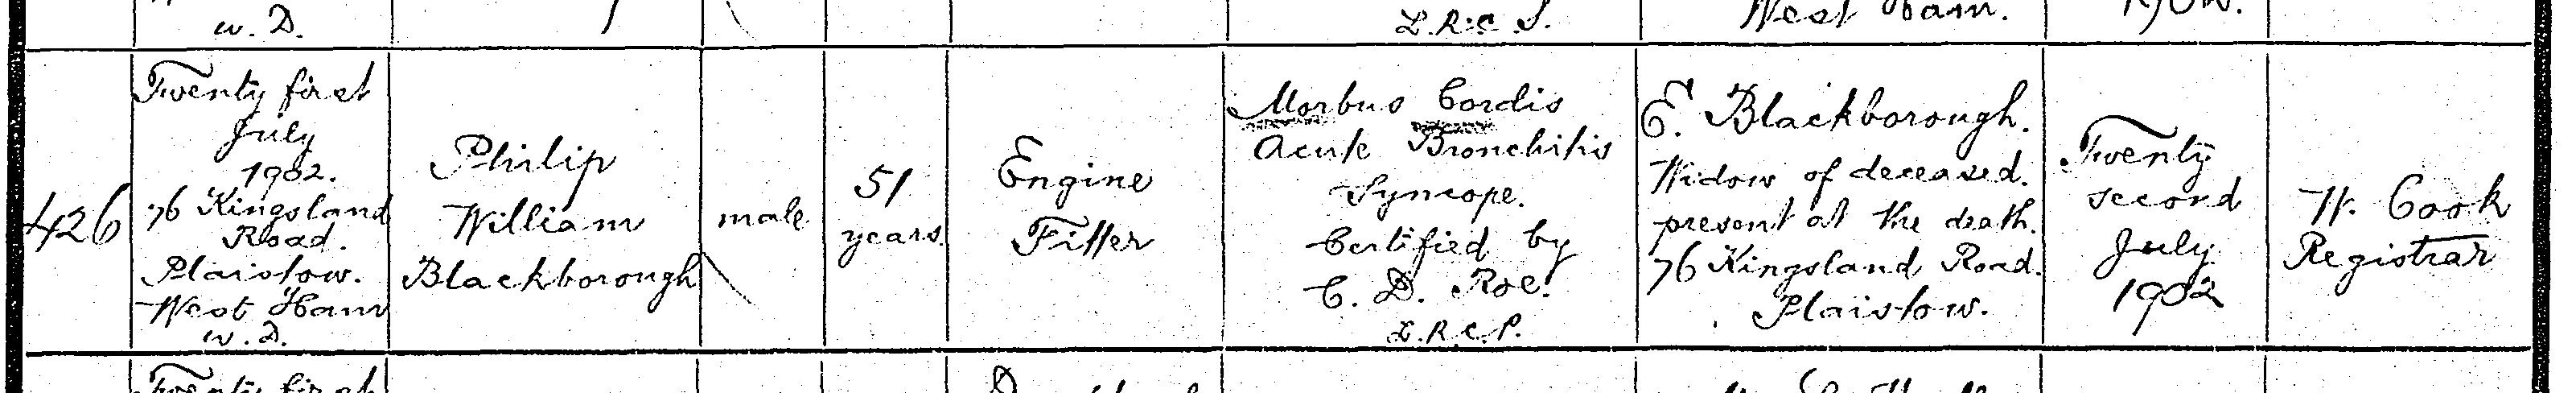 w. D.
L.R.C.S.
West Ham.
426
Twenty first
July
1902.
76 Kingsland
Road.
Plaistow.
West Ham
w. D.
Philip
William
Blackborough
male
51
years.
Engine
Fitter
Morbus Cordis
Acute Bronchitis
Syncope.
Certified by
C. D. Roe.
L.R.C.P.
E. Blackborough.
Widow of deceased.
present at the death.
76 Kingsland Road.
Plaistow.
Twenty
second
July
1902
W. Cook
Registrar
Twenty first